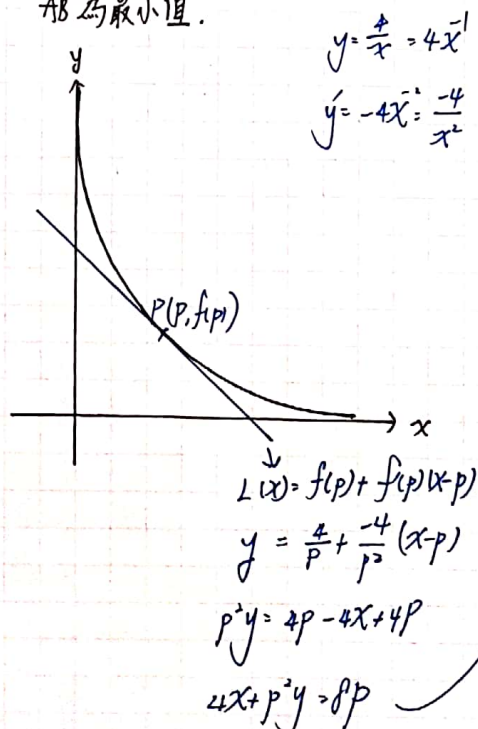 AB 的最小值.
y = 4/x = 4x⁻¹
y' = -4x⁻² = -4/x²
y
P(p, f(p))
x
L(x) = f(p) + f'(p)(x-p)
y = 4/p + -4/p² (x-p)
p²y = 4p - 4x + 4p
4x + p²y = 8p